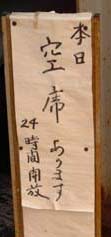 本日
空席あります
24時間開放